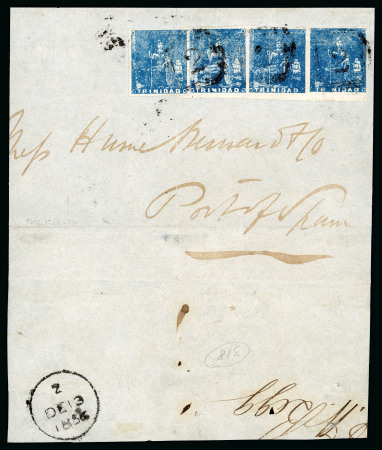 TRINIDAD TRINIDAD TRINIDAD TRINIDAD
Mess Hume Bernard & Co
Port of Spain
318
2
DE 13
1856